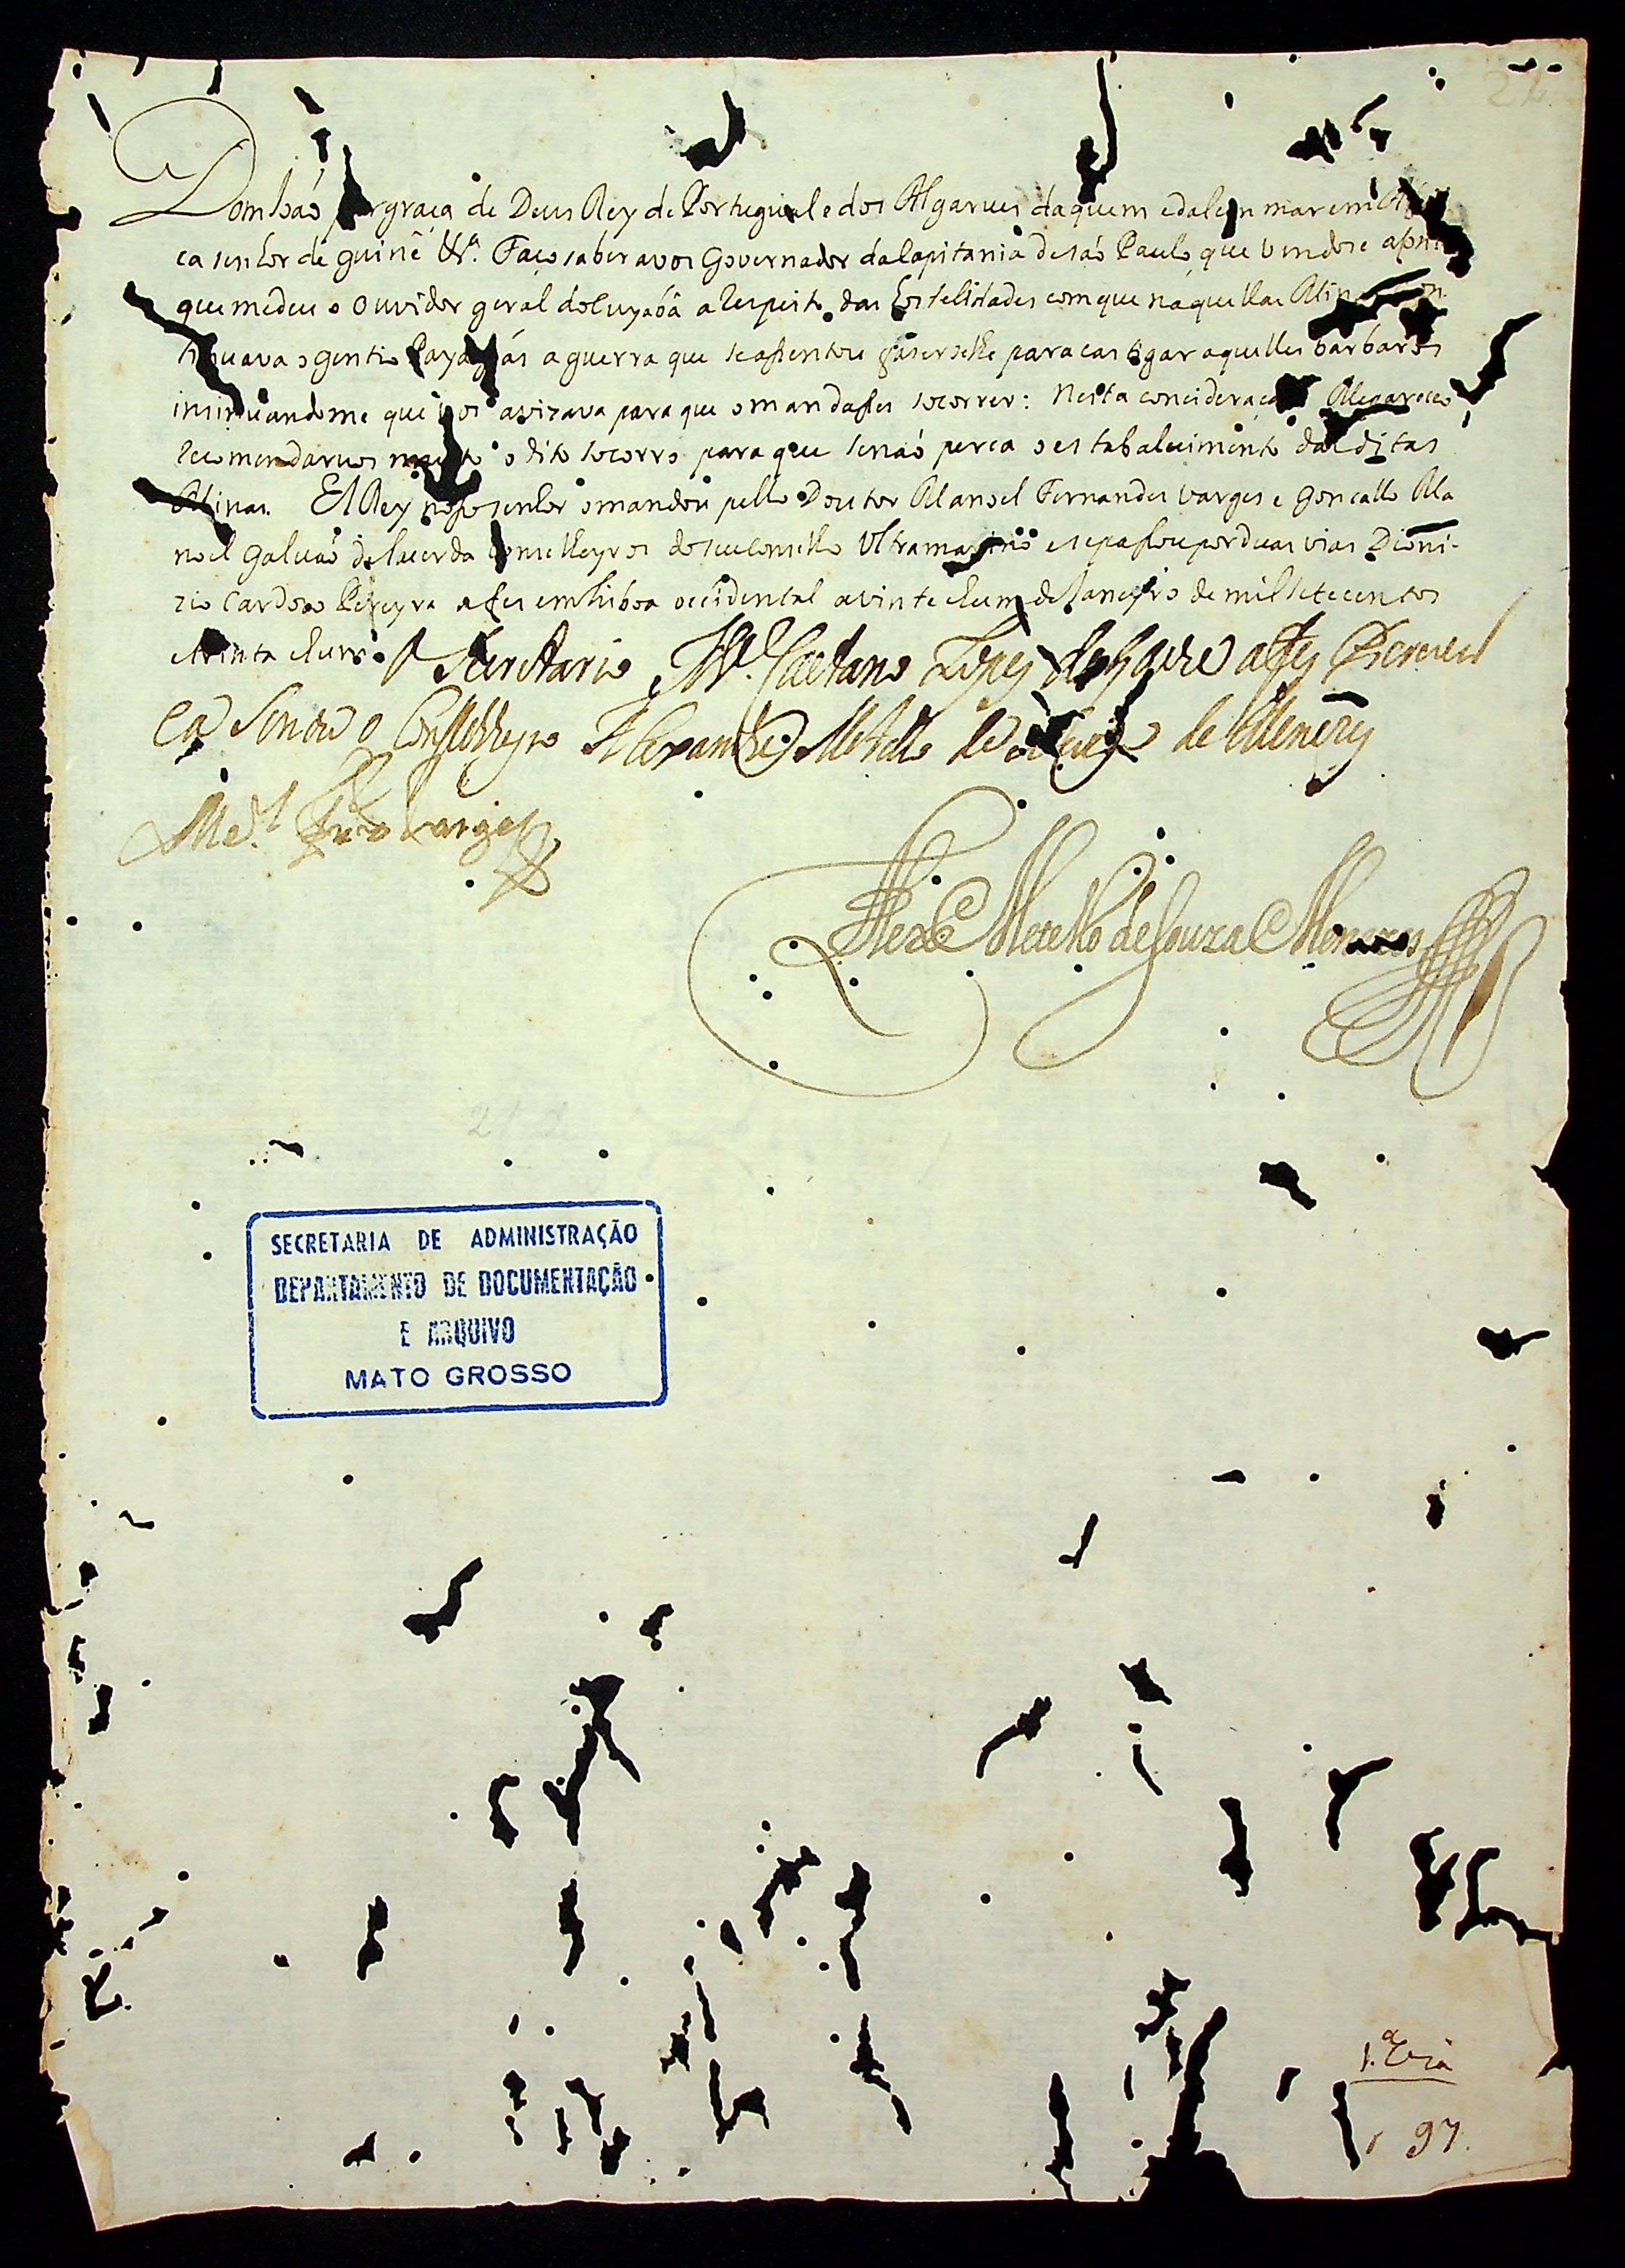 Dom Ioáo por graça de Deus Rey de Portugual e dos Algarues daquem e dalem mar em
ca senhor de guiné &.ª Faço saber avos Governador da Capitania de sáo Paulo, que vendose
que me deu o Ouvidor geral do Cuyabá a Respeito das hostelidades com que naquellas Minas con
tinuava o gentio Payaguás a guerra que se assentou faserselhe para castigar aquelles barbaros
insinuandome que vos avizava para que o mandasses socorrer: Nesta concideraçáo Me pareceo
Recomendarvos muito o dito socorro para que senáo perca o estabalecimento das ditas
Minas. El Rey nosso senhor o mandou pello Doutor Manoel Fernandes Varges e Goncallo Ma
noel Galváo de Lacerda Conselheyros do seu Conselho Ultramarino e se passou por duas vias Dioni-
zio Cardoso Pereyra a fes em Lisboa occidental a vinte e hum de Janeyro de mil setecentos
e trinta e hum. O Secretario M.el Caetano Lopes de Lavre a fez escrever
e a Sinou o Conselheyro Alexandre Metello de Souza de Menezes
M.el Frz Varges
Alex.e Metello de Souza Menezes
SECRETARIA DE ADMINISTRAÇÃO
DEPARTAMENTO DE DOCUMENTAÇÃO
E ARQUIVO
MATO GROSSO
1.ª Via
97.